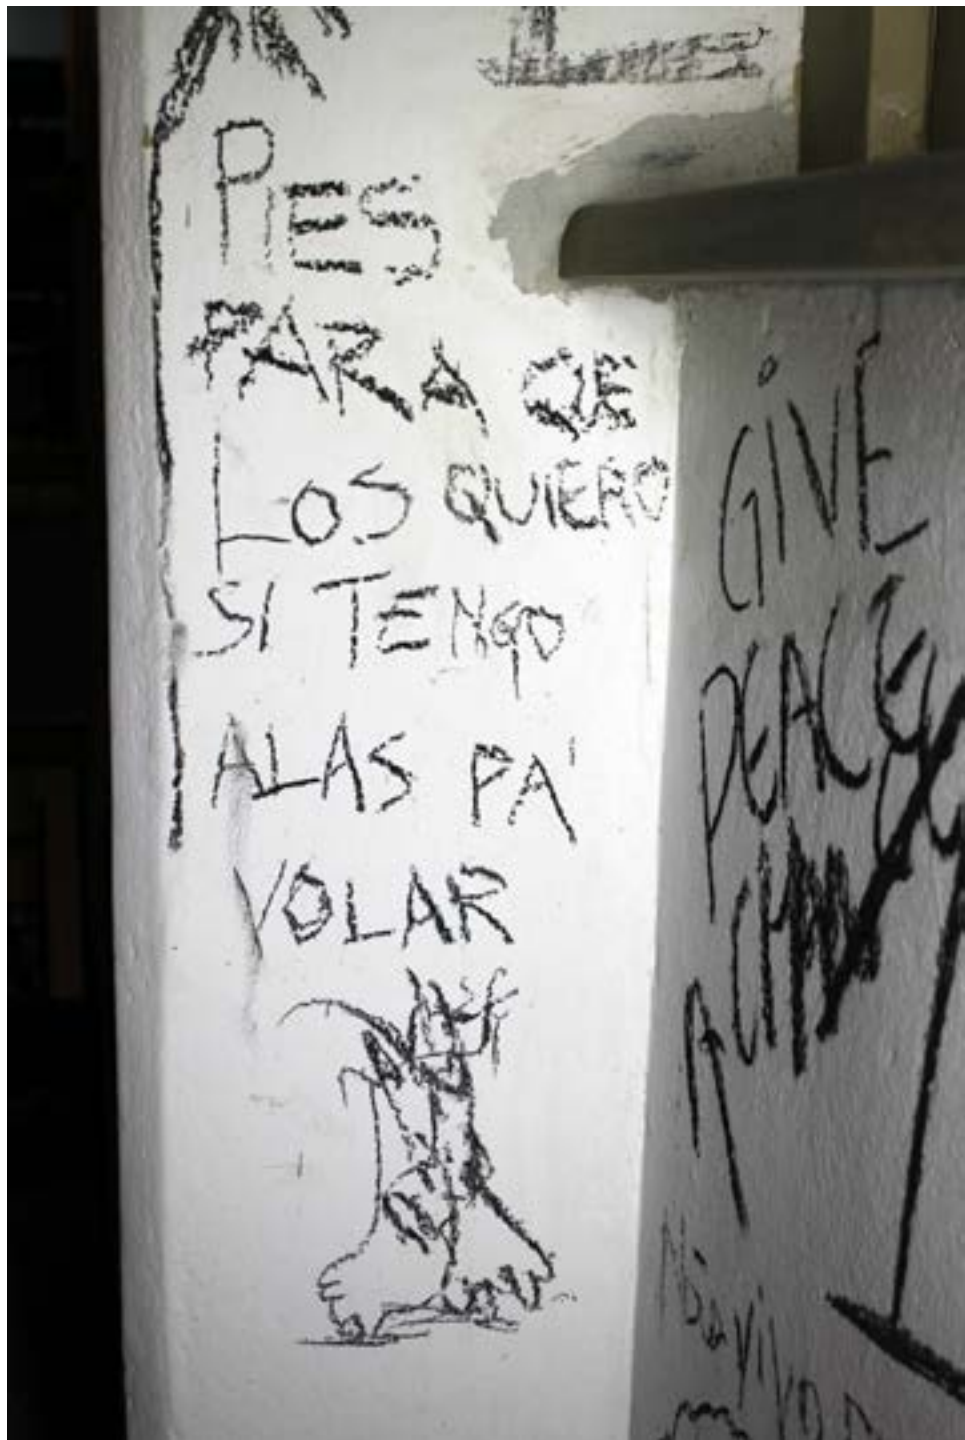 PIES
PARA QE
LOS QUIERO
SI TENGO
ALAS PA'
VOLAR
GIVE
PEACE
A CHANCE